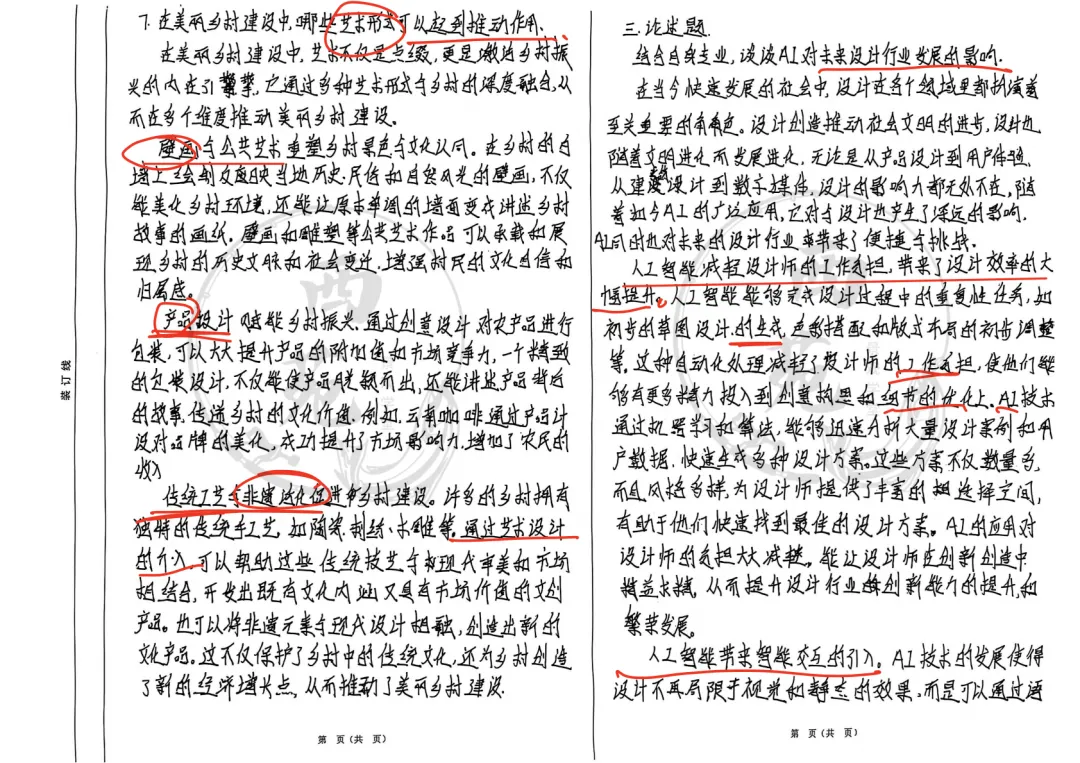 7. 在美丽乡村建设中,哪些艺术形式可以起到推动作用.
在美丽乡村建设中,艺术不仅是点缀,更是激活乡村振
兴的内在引擎,它通过多种艺术形式与乡村的深度融合,从
而在多个维度推动美丽乡村建设。
壁画与公共艺术重塑乡村景色与文化认同。在乡村的白
墙上绘制反应映当地历史.民俗和自然风光的壁画,不仅
能美化乡村环境,还能让原本单调的墙面变成讲述乡村
故事的画纸,壁画和雕塑等公共艺术作品可以承载和展
现乡村的历史文脉和社会变迁,增强村民的文化自信和
归属感。
产品设计赋能乡村振兴.通过创意设计对农产品进行
包装,可以大大提升产品的附加值和市场竞争力,一个精致
的包装设计,不仅能使产品脱颖而出,还能讲述产品背后
的故事.传递乡村的文化价值.例如.云南咖啡通过产品计
设对品牌的美化,成功提升了市场影响力,增加了农民的
收入
传统工艺与非遗活化促进乡村建设。许多的乡村拥有
独特的传统手工艺,如陶瓷.刺绣.木雕等。通过艺术设计
的介入,可以帮助这些传统技艺与现代审美和市场
相结合,开发出既有文化内涵又具有市场价值的文创
产品。也可以将非遗元素与现代设计相融,创造出新的
文化产品。这不仅保护了乡村中的传统文化,还为乡村创造
了新的经济增长点,从而推动了美丽乡村建设.
第 页(共 页)
装订线
三.论述题.
结合自身专业,谈谈AI对未来设计行业发展的影响.
在当今快速发展的社会中,设计在各个领域里都扮演着
至关重要的角色。设计创造推动社会文明的进步,设计也
随着文明进化而发展进化,无论是从产品设计到用户体验.
从建筑设计到数字媒体,设计的影响力都无处不在,随
着如今AI的广泛应用,它对于设计也产生了深远的影响.
AI同时也对未来的设计行业带来了便捷与挑战.
人工智能减轻设计师的工作负担,带来了设计效率的大
幅提升。人工智能能够完成设计过程中的重复性任务,如
初步的草图设计.的生成,色彩搭配和版式布局的初步调整
等,这种自动化处理减轻了设计师的工作负担,使他们能
够有更多精力投入到创意构思和细节的优化上,AI技术
通过机器学习和算法,能够迅速分析大量设计案例和用
户数据,快速生成多种设计方案。这些方案不仅数量多,
而且风格多样,为设计师提供了丰富的选择空间,
有助于他们快速找到最佳的设计方案。AI的应用对
设计师的负担大大减轻,能让设计师在创新创造中
精益求精,从而提升设计行业创新能力的提升,和
繁荣发展。
人工智能带来智能交互的引入。AI技术的发展使得
设计不再局限于视觉和静态的效果,而是可以通过语
第 页(共 页)